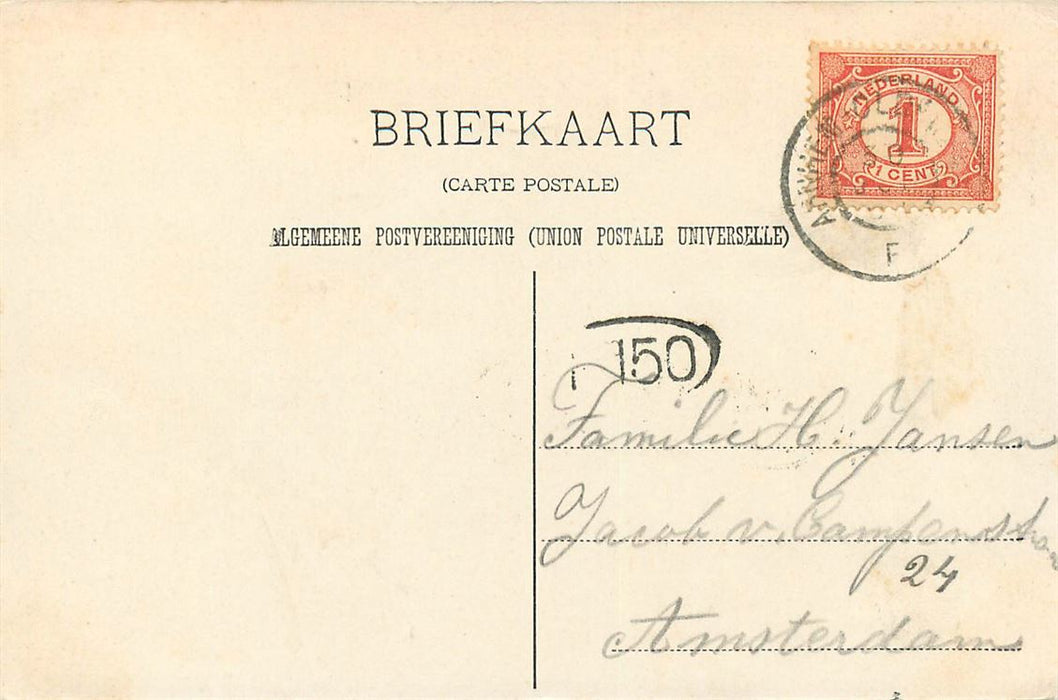 BRIEFKAART
(CARTE POSTALE)
ALGEMEENE POSTVEREENIGING (UNION POSTALE UNIVERSELLE)
NEDERLAND
1
1 CENT
ARNHEM
F
150
Familie H. Jansen
Jacob v. Campenstra
24
Amsterdam